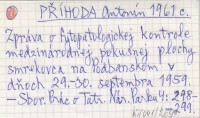 PŘÍHODA Antonín 1961 c.
Zpráva o fytopatologickej kontrole
medzinárodnej pokusnej plochy
smrekovca na Podbanskom v
dňoch 29.-30. septembra 1959.
- Sbor. Prác o Tatr. Nár. Parku 4: 298-
-299.